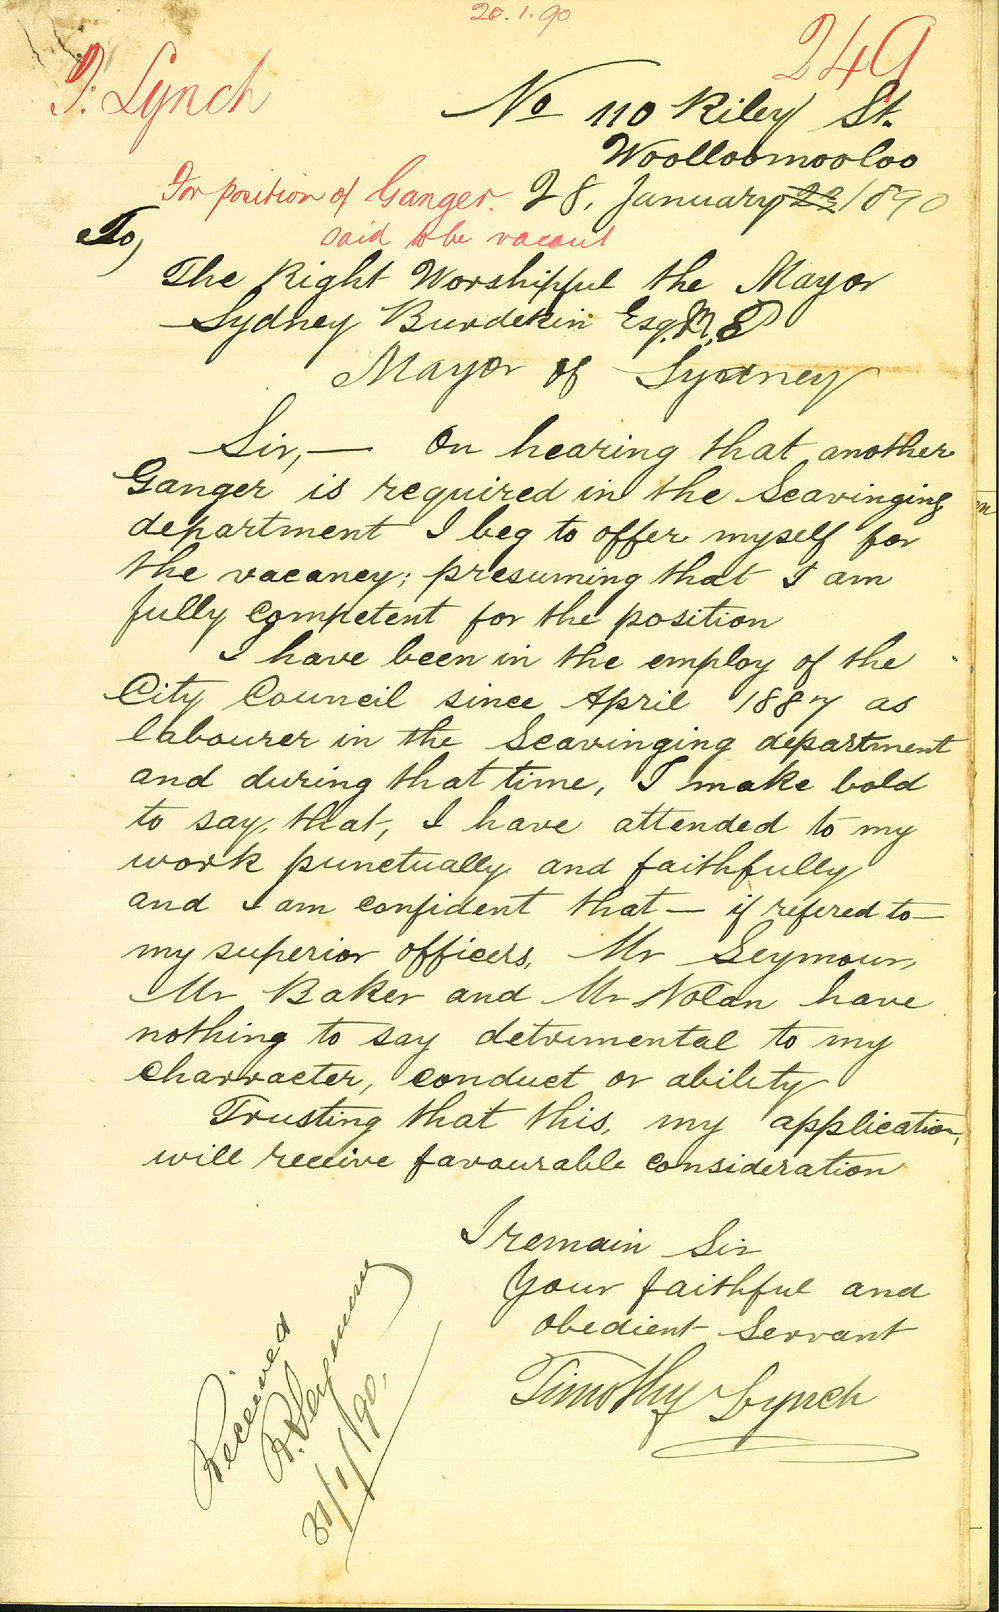 28.1.90
249
T. Lynch
No 110 Riley St.
Woolloomooloo
For position of Ganger.
said to be vacant
28, January 1890
To,
The Right Worshipful the Mayor
Sydney Burdekin Esq. M.P
Mayor of Sydney
Sir,— On hearing that another
Ganger is required in the Scavinging
department I beg to offer myself for
the vacancy; presuming that I am
fully competent for the position
I have been in the employ of the
City Council since April 1887 as
labourer in the Scavinging department
and during that time, I make bold
to say, that, I have attended to my
work punctually and faithfully
and I am confident that — if refered to —
my superior officers, Mr Seymour,
Mr Baker and Mr Nolan have
nothing to say detrimental to my
charracter, conduct or ability
Trusting that this, my application,
will receive favourable consideration
I remain Sir
Your faithful and
obedient Servant
Timothy Lynch
Received
R. Seymour
31/1/90.